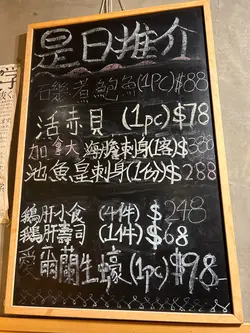 是日推介
石㸆煮鮑魚(1PC)$88
活赤貝 (1pc) $78
加拿大海膽刺身(客)$388
池魚皇刺身(1份)$288
鵝肝小食 (4件) $248
鵝肝壽司 (1件) $68
愛爾蘭生蠔(1pc)$98